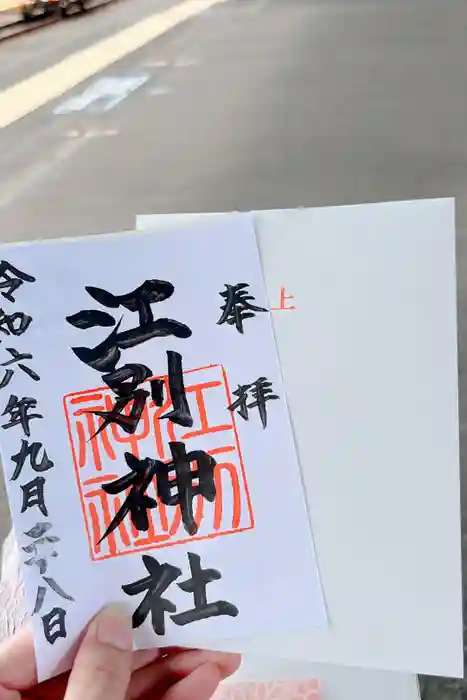 奉拝
江別神社
令和六年九月二十八日
江別神社
上